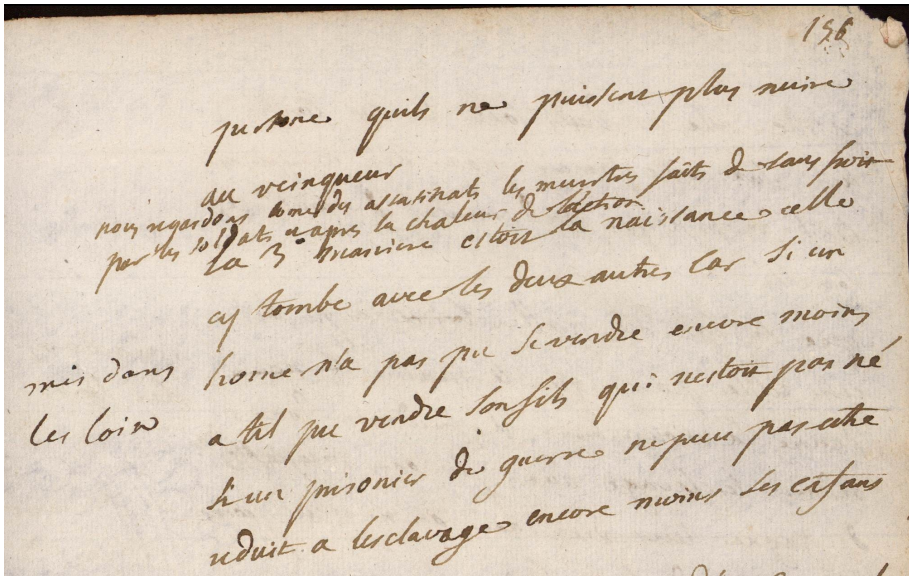 156
persone quils ne puissent plus nuire
au veinqueur
nous regardons come des assasinats les meurtres faits de sang froit
par les soldats et apres la chaleur de laction
la 3e maniere estoit la naissance celle
cy tombe avec les deux autres car si un
home n'a pas pu se vendre encore moins
mis dans
les loix
a til pu vendre son fils qui nestoit pas né
si un prisonier de guerre ne peut pas estre
reduit a lesclavage encore moins ses enfans